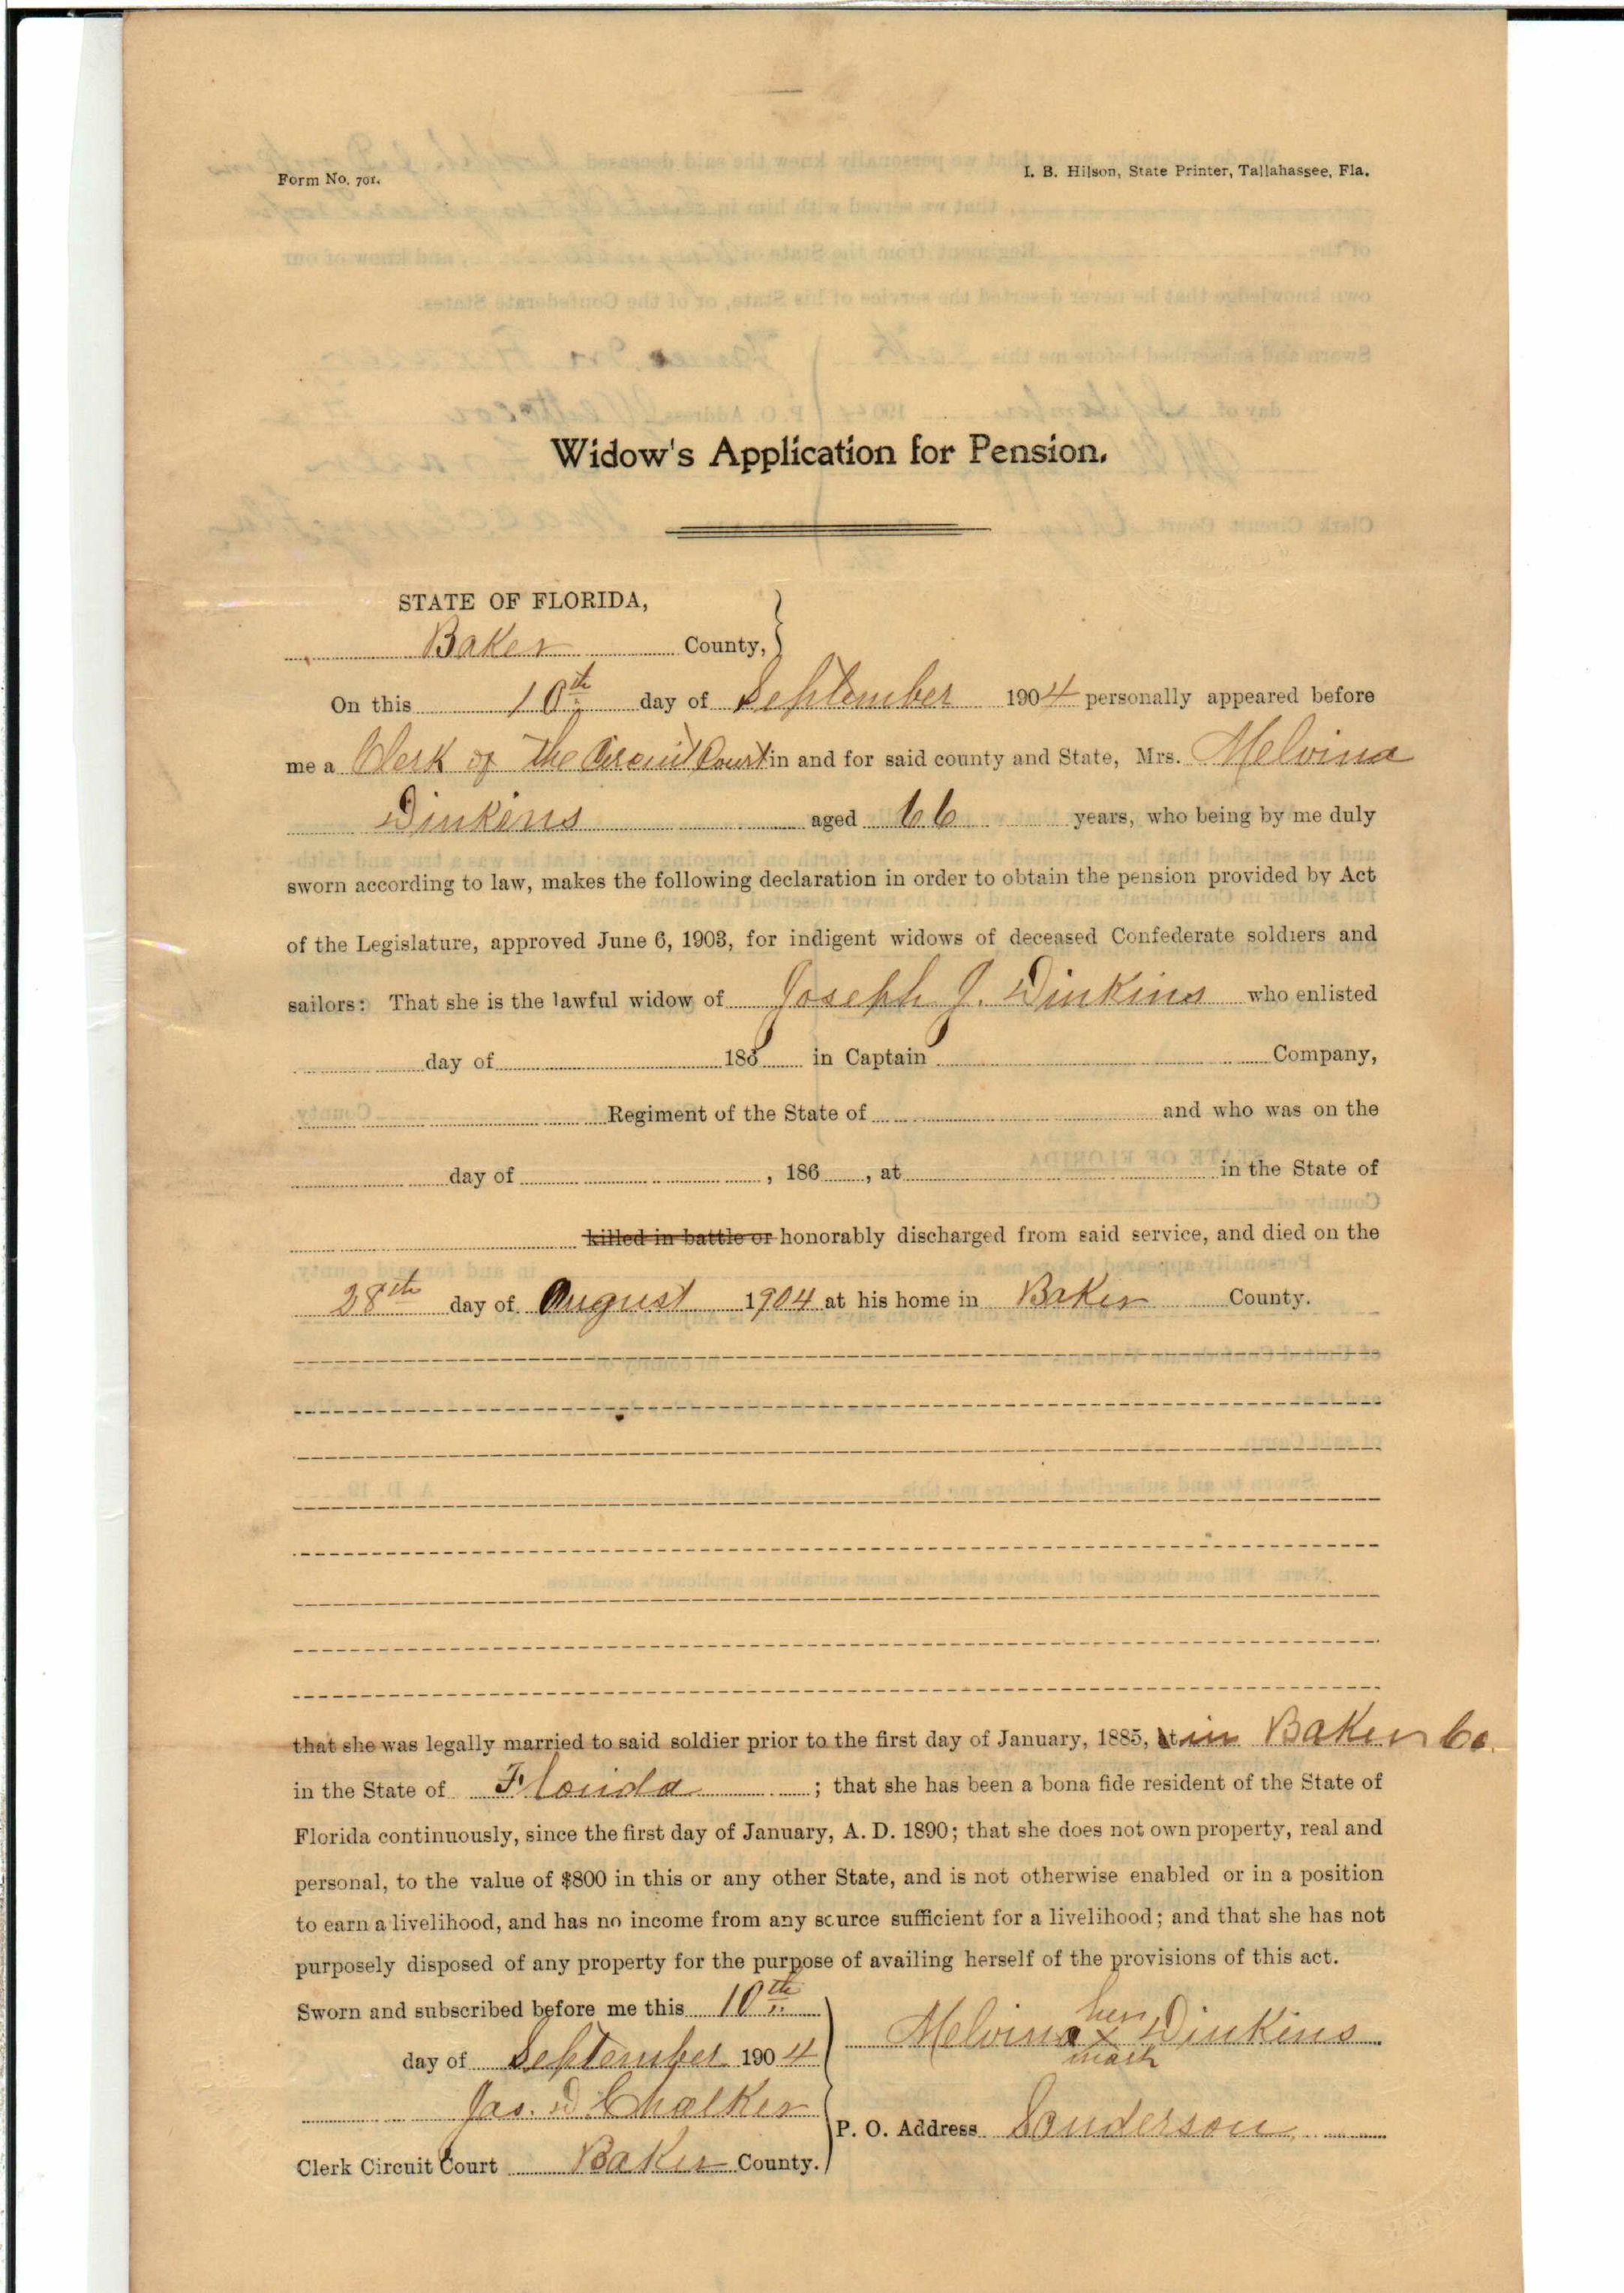 Form No. 701. I. B. Hilson, State Printer, Tallahassee, Fla.
Widow's Application for Pension.
STATE OF FLORIDA,
Baker County,
On this 10th day of September 1904 personally appeared before
me a Clerk of the Circuit Court in and for said county and State, Mrs. Melvina
Dinkins aged 66 years, who being by me duly
sworn according to law, makes the following declaration in order to obtain the pension provided by Act
of the Legislature, approved June 6, 1903, for indigent widows of deceased Confederate soldiers and
sailors: That she is the lawful widow of Joseph J. Dinkins who enlisted
day of 186 in Captain Company,
Regiment of the State of and who was on the
day of , 186 , at in the State of
killed in battle or honorably discharged from said service, and died on the
28th day of August 1904 at his home in Baker County.
that she was legally married to said soldier prior to the first day of January, 1885, at in Baker Co.
in the State of Florida ; that she has been a bona fide resident of the State of
Florida continuously, since the first day of January, A. D. 1890; that she does not own property, real and
personal, to the value of $800 in this or any other State, and is not otherwise enabled or in a position
to earn a livelihood, and has no income from any source sufficient for a livelihood; and that she has not
purposely disposed of any property for the purpose of availing herself of the provisions of this act.
Sworn and subscribed before me this 10th
day of September 1904
Jas. D. Chalker
Clerk Circuit Court Baker County.
her
Melvina x Dinkins
mark
P. O. Address Sanderson